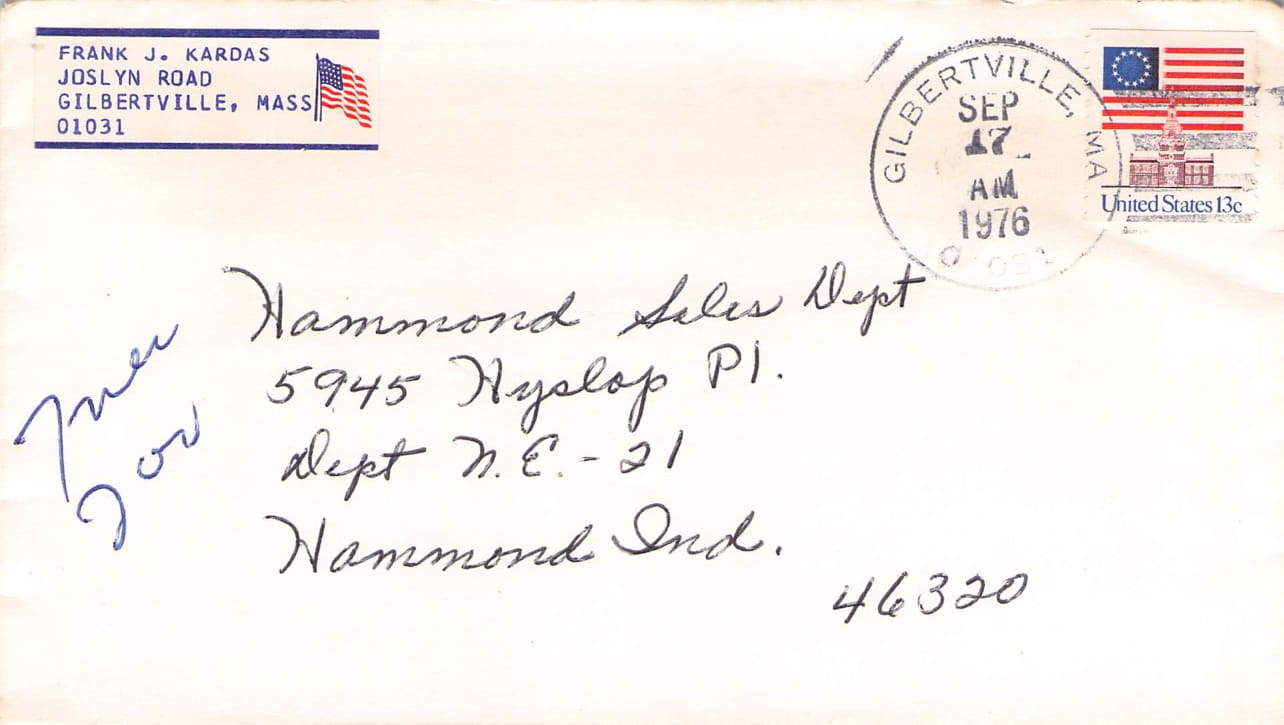 FRANK J. KARDAS
JOSLYN ROAD
GILBERTVILLE, MASS
01031
GILBERTVILLE, MA
SEP
17
AM
1976
United States 13c
Hammond Sales Dept
5945 Hyslop Pl.
Dept N.E.-21
Hammond Ind.
46320